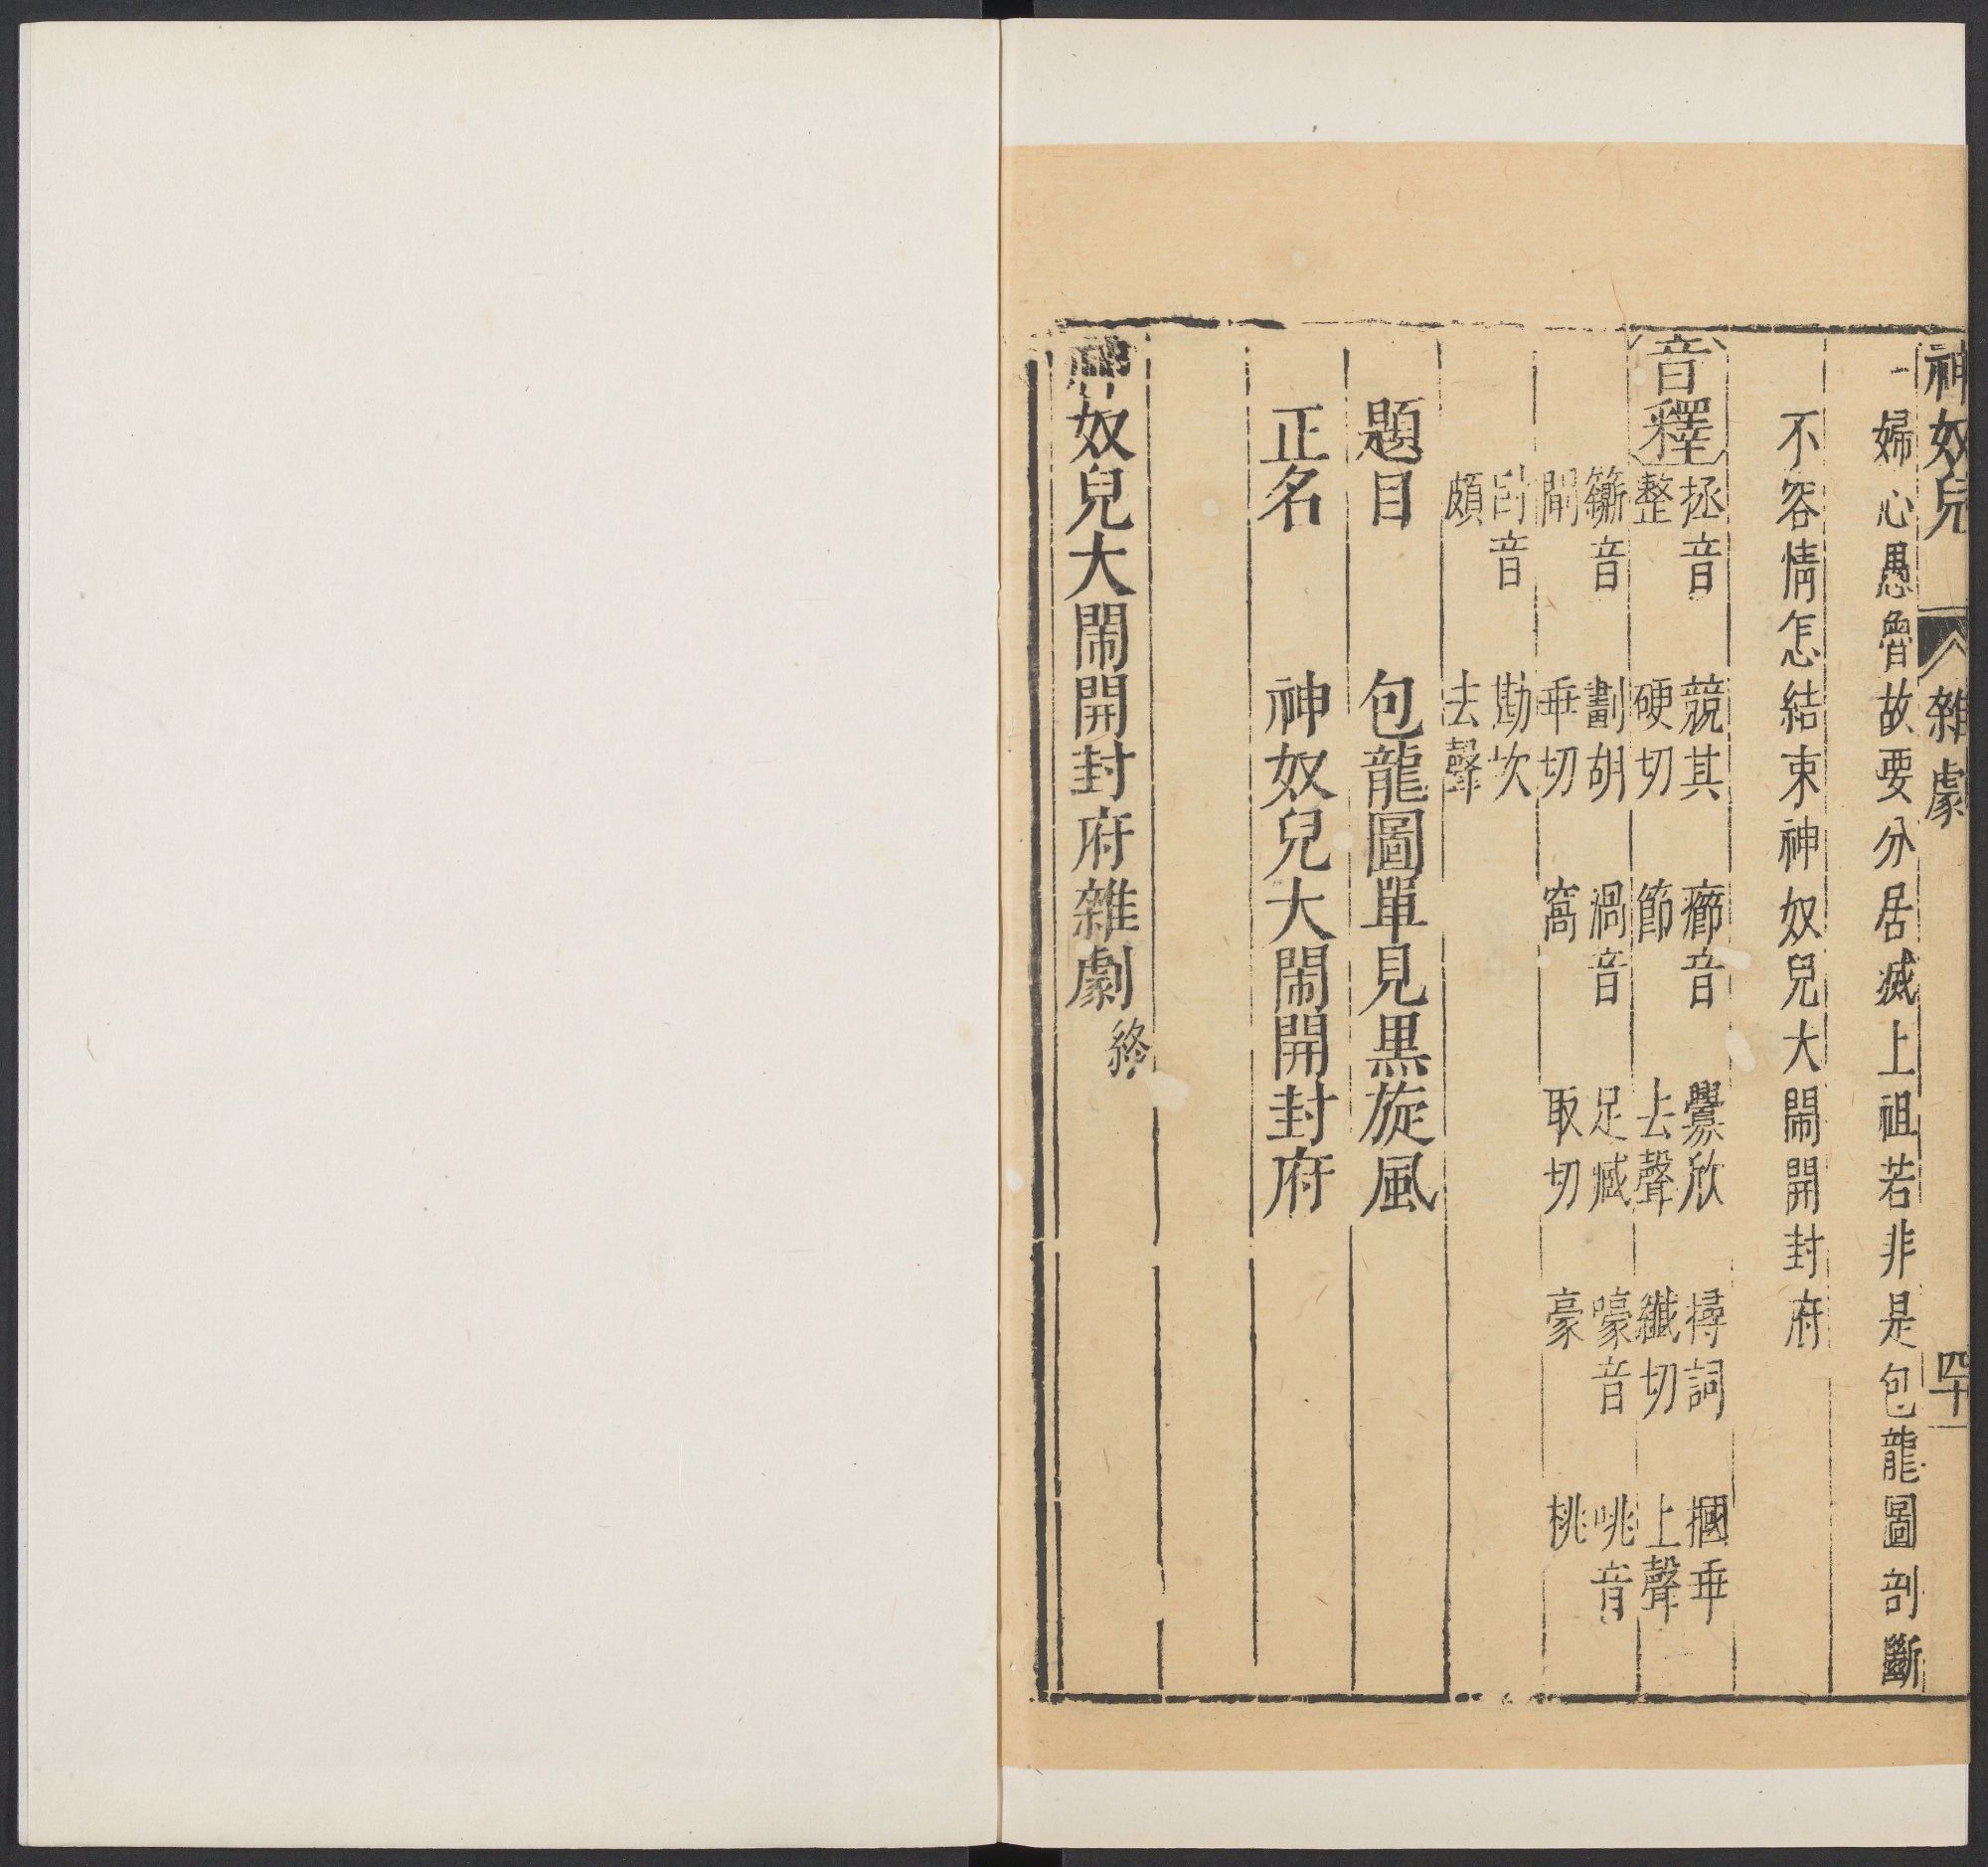 神奴兒 雜劇 四十
一婦心愚魯故要分居滅上祖若非是包龍圖剖斷
不容情怎結束神奴兒大鬧開封府
音釋
拯音整 競其硬切 癤音節 釁欣去聲 撏詞纖切 摑乖上聲
籪音 劃胡乖切 渦音窩 足臧取切 嚎音豪 咷音桃
音頗 勘坎去聲
題目 包龍圖單見黒旋風
正名 神奴兒大鬧開封府
神奴兒大鬧開封府雜劇終